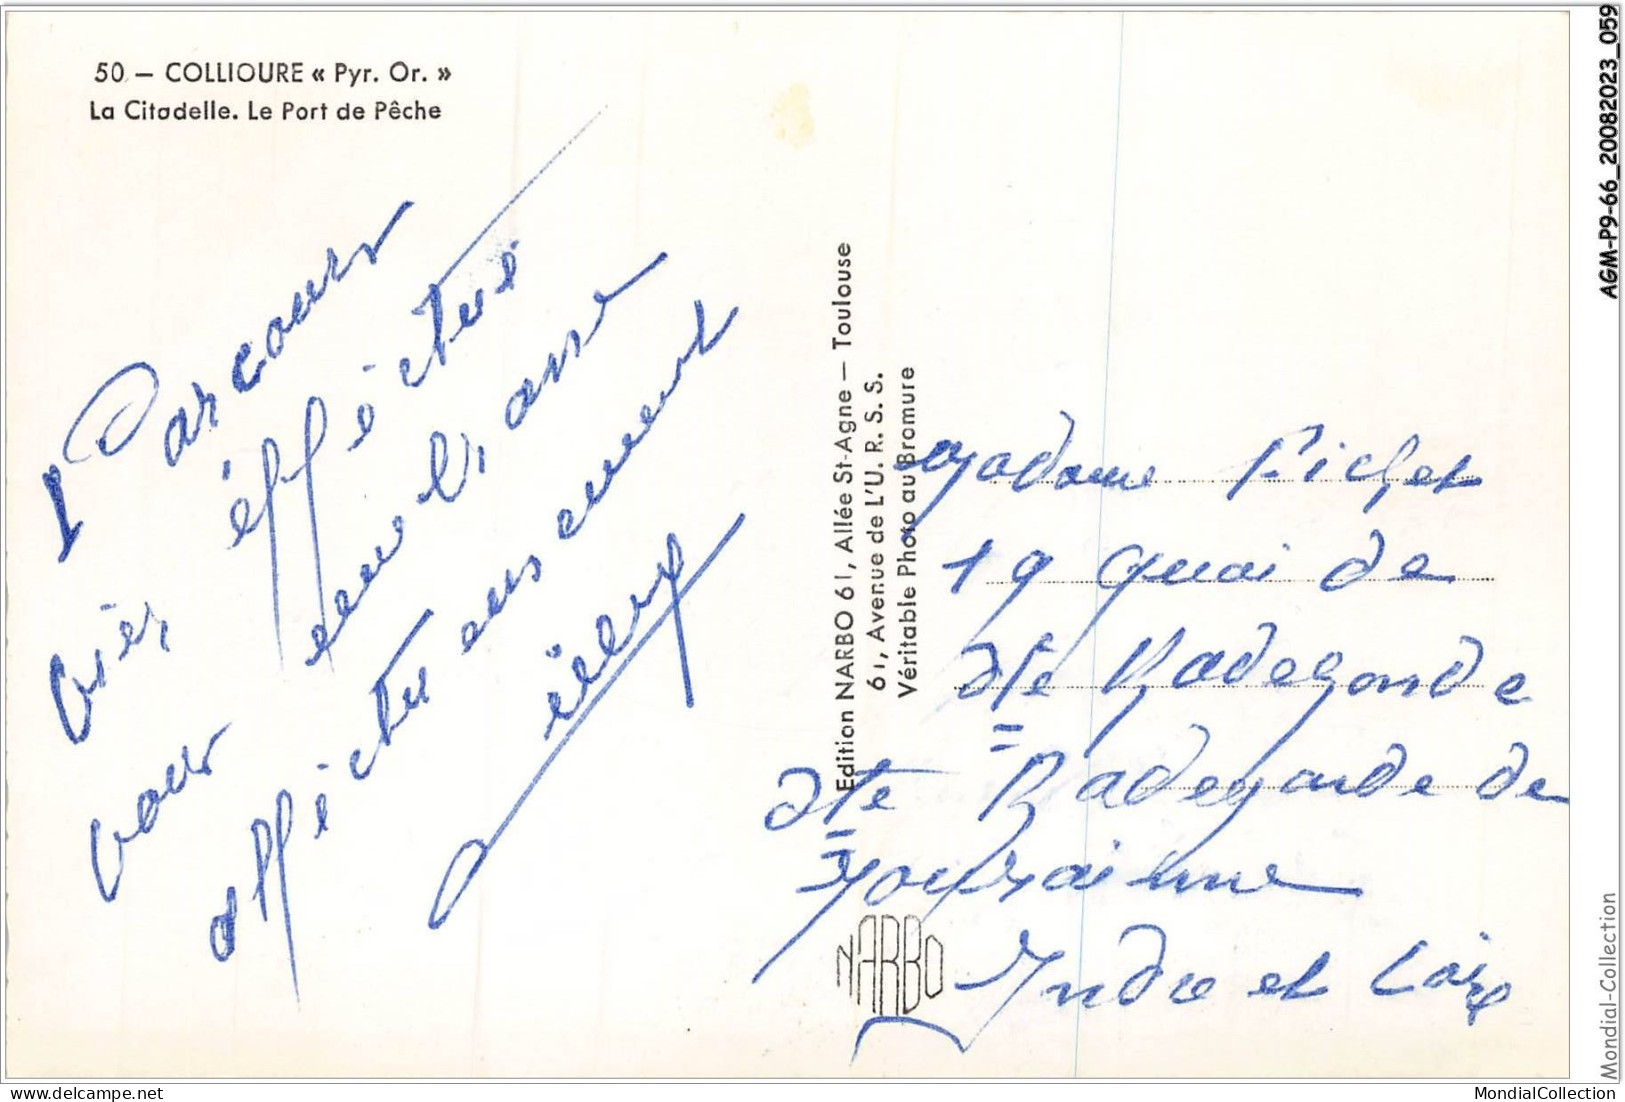 50 — COLLIOURE « Pyr. Or. »
La Citadelle. Le Port de Pêche
Parcours
bien éfféctué
vous embrasse
afféctueusement
Edition NARBO 61, Allée St-Agne — Toulouse
61, Avenue de L'U. R. S. S.
Véritable Photo au Bromure
Madame Pichet
19 quai de
Ste Radegonde
Ste Radegonde de
Touraine
Indre et Loire
NARBO
AGM-P9-66_20082023_059
Mondial-Collection
www.delcampe.net
MondialCollection